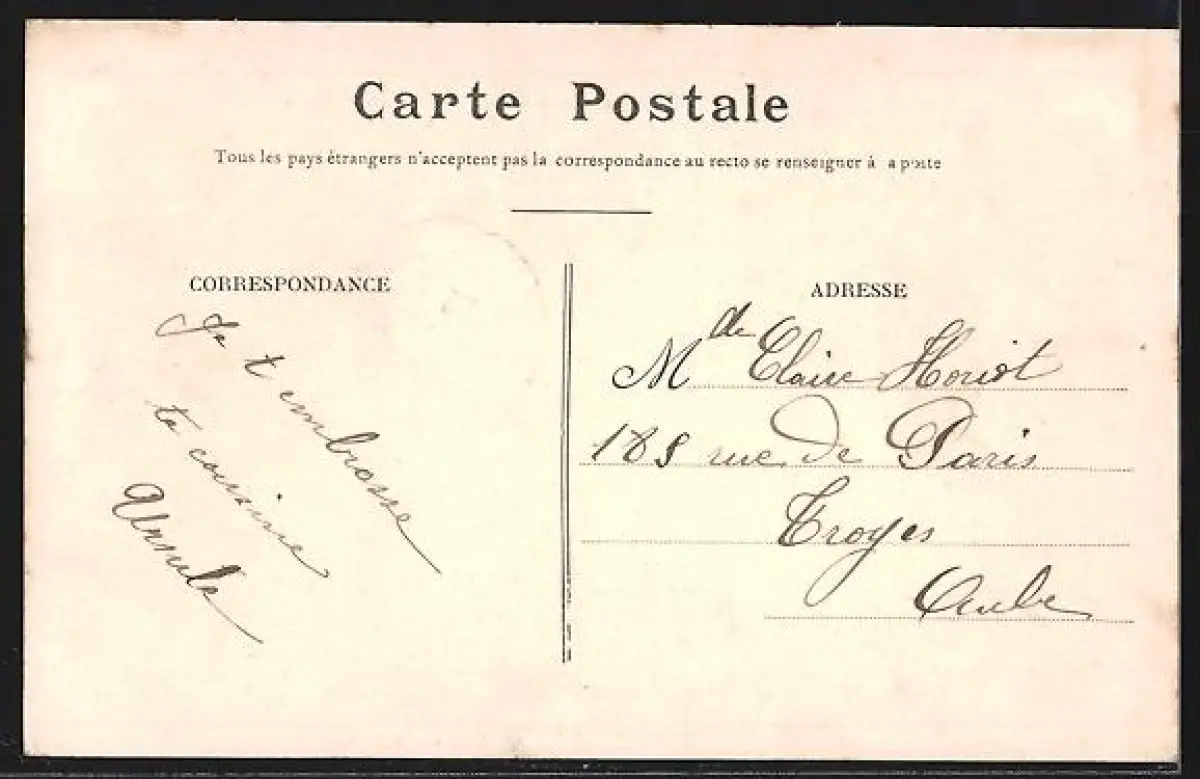 Carte Postale
Tous les pays étrangers n'acceptent pas la correspondance au recto se renseigner à a poste
CORRESPONDANCE
Je t embrasse
ta cousine
Ursule
ADRESSE
Mde Claire Horiot
188 rue de Paris
Troyes
Aube